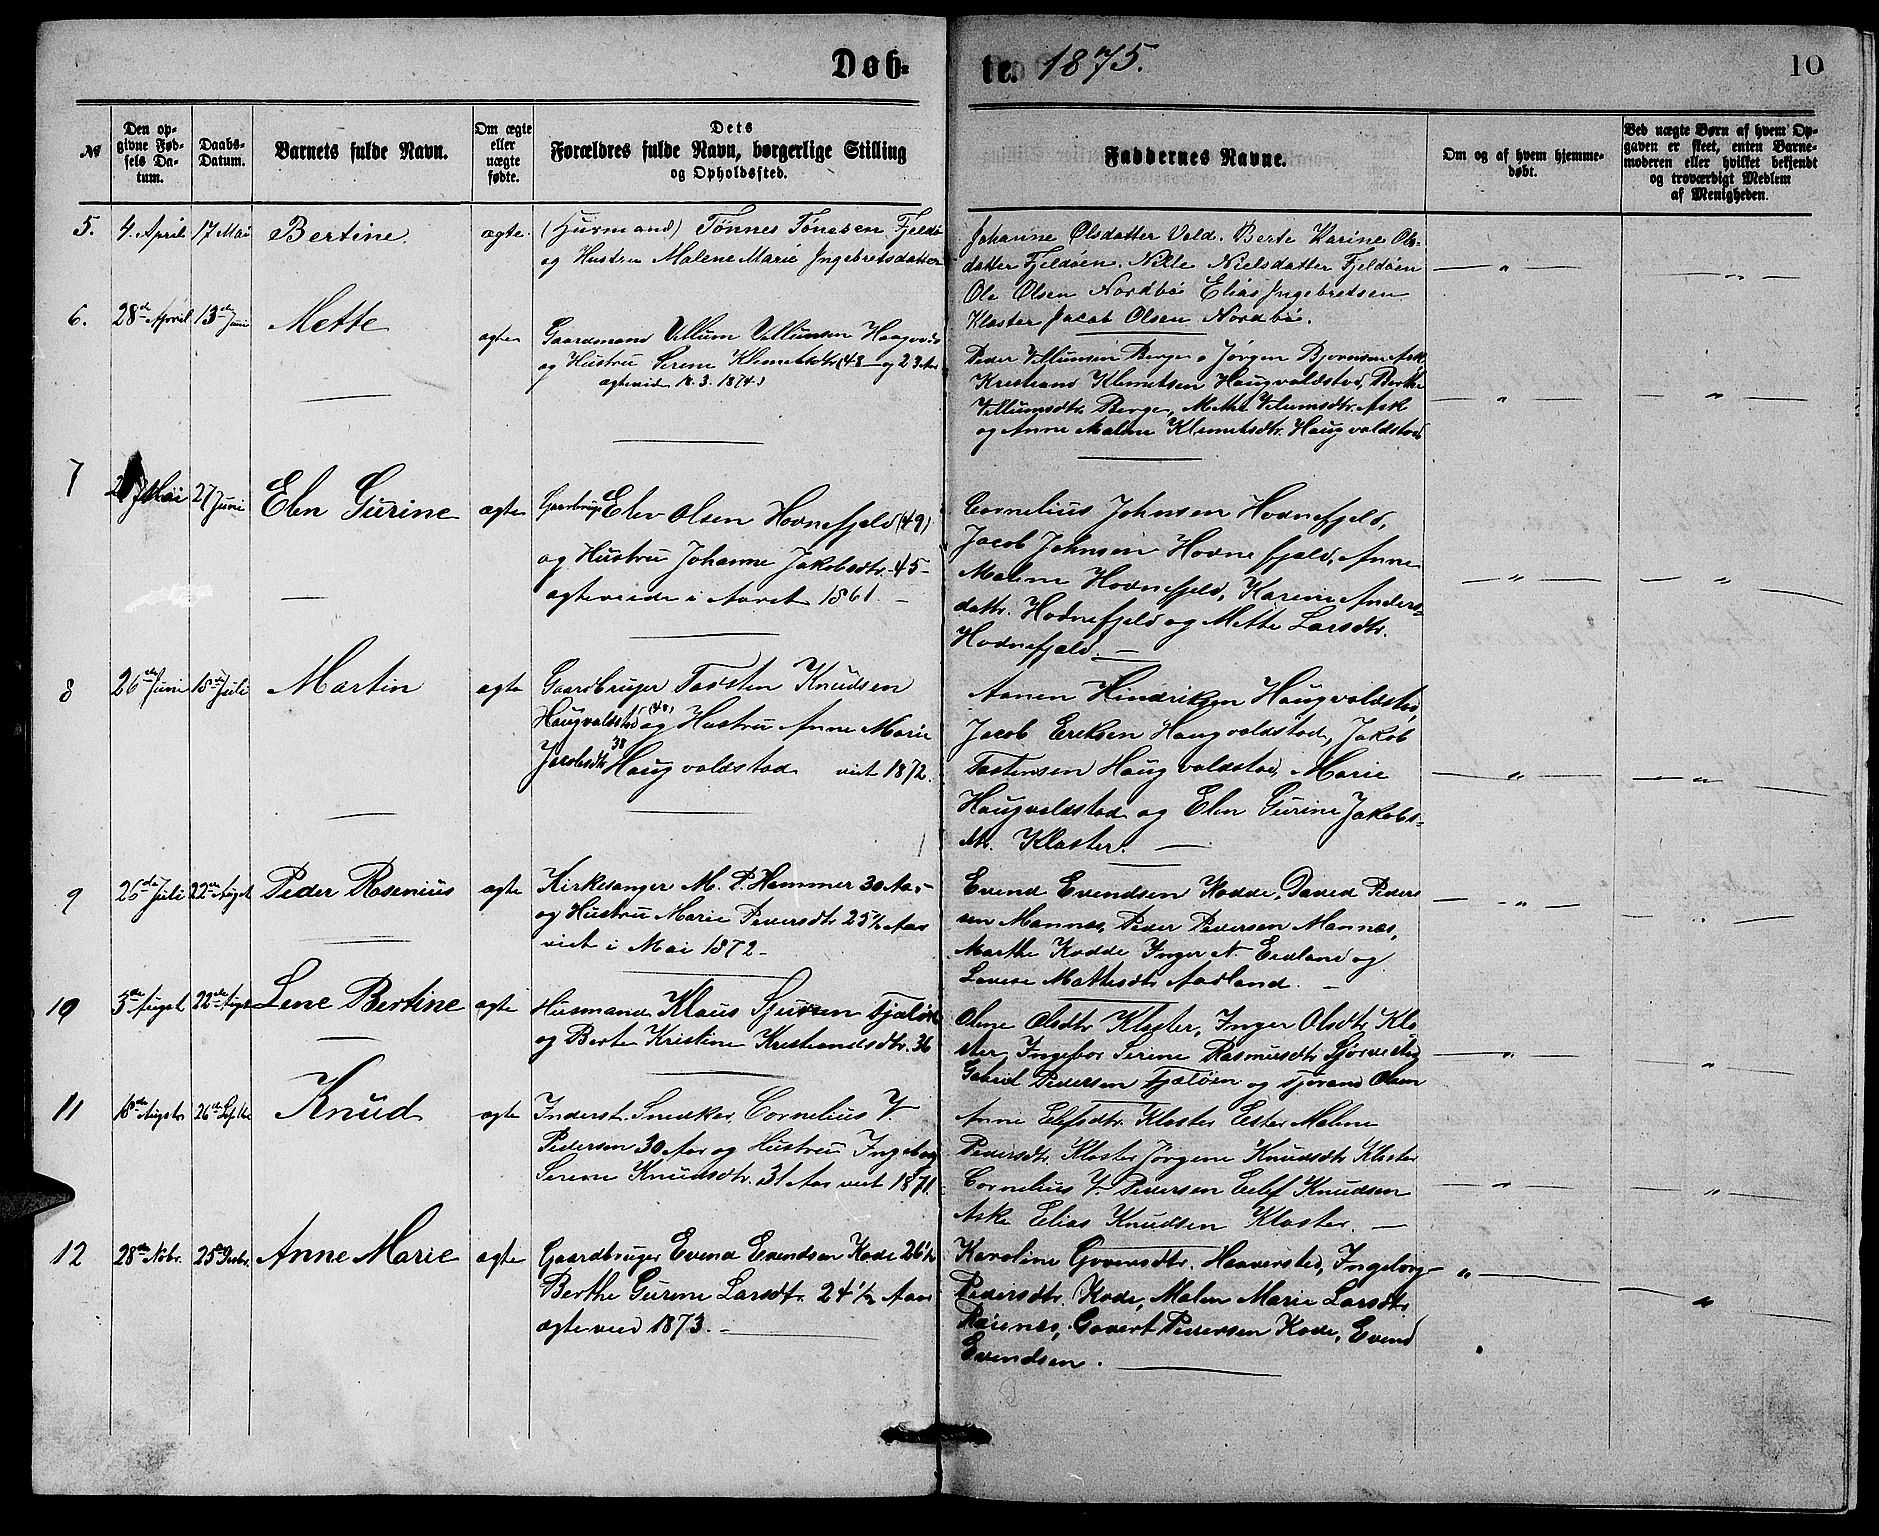 Døb-
te. 1875.
10
№
Den op-
givne Fød-
sels Da-
tum.
Daabs-
Datum.
Barnets fulde Navn.
Om ægte
eller
uægte
fødte.
Dets
Forældres fulde Navn, borgerlige Stilling
og Opholdssted.
Faddernes Navne.
Om og af hvem hjemme-
døbt.
Ved uægte Børn af hvem Op-
gaven er skeet, enten Barne-
moderen eller hvilket bekjendt
og troværdigt Medlem
af Menigheden.
5. 4. April 17 Mai Bertine. ægte. (Husmand) Tønnes Tønesen Fjeldø
og Hustru Malene Marie Ingebretsdatter
Johanne Olsdatter Vold. Berte Karine Ols-
datter Fjeldøen. Nille Nielsdatter Fjeldøen
Ole Olsen Nordbø Elias Ingebretsen
Kloster Jacob Olsen Nordbøe.
6. 28de April 13de Juni Mette ægte Gaardmand Villum Villumsen
og Hustru Serene Klemetsdtr (48 og 23 Aar
ægteviet 18.3.1874.)
Peder Villumsen Berge, Jørgen Bjørnsen Ask
Kristiand Klemetsen Haugvaldstad, Berthe
Villumsdtr. Berge, Mette Vilumsdtr. Ask
og Anne Malene Klemetsdtr. Haugvaldstad
7 Mai 27 Juni Elen Gurine ægte Gaardbruger Elev Olsen Hovnefjeld (49)
og Hustru Johanne Jakobsdtr. 45 -
ægteviede i Aaret 1861. -
Cornelius Johnsen Hodnefjeld,
Jacob Johnsen Hovnefjeld, Anne
Malene Hodnefjeld, Karene Anders-
dattr. Hodnefjeld og Mette Larsdtr.
Hodnefjeld. -
8 26de Juni 18de Juli Martin ægte Gaardbruger Tosten Knudsen
Haugvaldstad (48) og Hustru Anne Marie
Jacobsdtr 38 Haugvaldstad viet 1872.
Aanen Hindriksen Haugvaldstad,
Jacob Eriksen Haugvaldstad, Jakob
Tostensen Haugvaldstad, Marie
Haugvaldstad og Elen Gurine Jakobs-
dtr. Kloster. -
9 26de Juli 22de Augst Peder Rosenius ægte Kirkesanger M. P. Hammer 30 Aar
og Hustru Marie Pedersdtr. 25½ Aar
viet i Mai 1872. -
Evend Evendsen Kodde, David Peder-
sen Mannes, Peder Pedersen Mannes,
Marthe Kodde Inger N. Eidland og
Lovise Mathisdtr Aadland. -
10 5de Augst. 22de Augst Lene Bertine ægte Husmand Klaus Sjursen Fjeløe
og Berte Kristine Kristiandsdtr. 36
Oline Olsdtr Kloster, Inger Olsdtr. Klo
ster, Ingebor Serine Rasmusdtr
Gabriel Pedersen Fjeløen og Olsen
11 18de Augstr 26de Septbr Knud ægte Inderst. Snedker, Cornelius V.
Pedersen 30 Aar og Hustru Ingeborg
Serene Knudsdtr. 31 Aar viet 1871.
Anne Elefsdtr. Kloster Ester Malene
Pedersdtr. Kloster Jørgene Knudsdtr Kloster
Cornelius V. Pedersen Elef Knudsen
Aske Elias Knudsen Kloster. -
12 28de Nobr. 25de Decbr. Anne Marie ægte Gaardbruger Evend Evendsen Kode 26½
Berthe Gurene Larsdtr. 24½ Aar
ægteviet 1873. -
Karoline Goversdtr. Haaversted, Ingeborg
Pedersdtr. Kode, Malen Marie Larsdtr.
Govert Pedersen Kode, Evend
Evendsen.